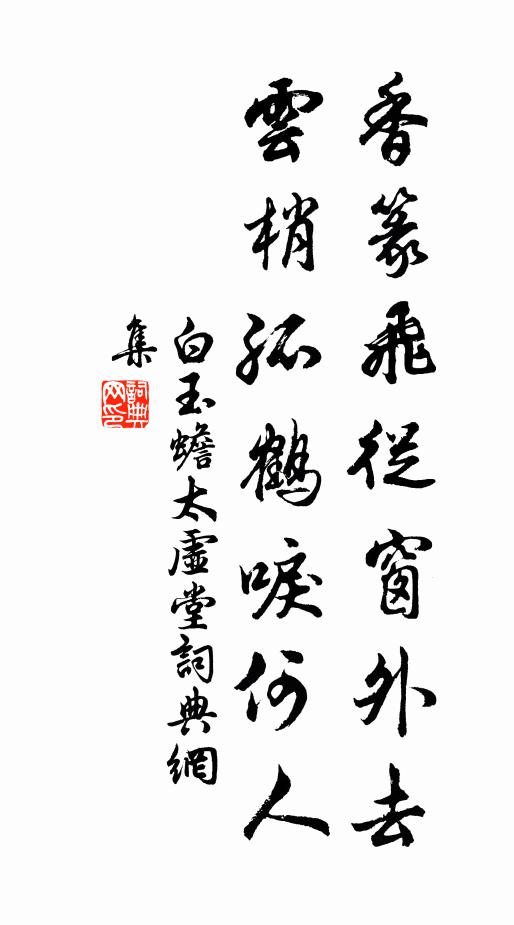 香篆飛從窗外去
雲梢孤鶴唳何人
白玉蟾太虛堂詞典網
集
詞典網印